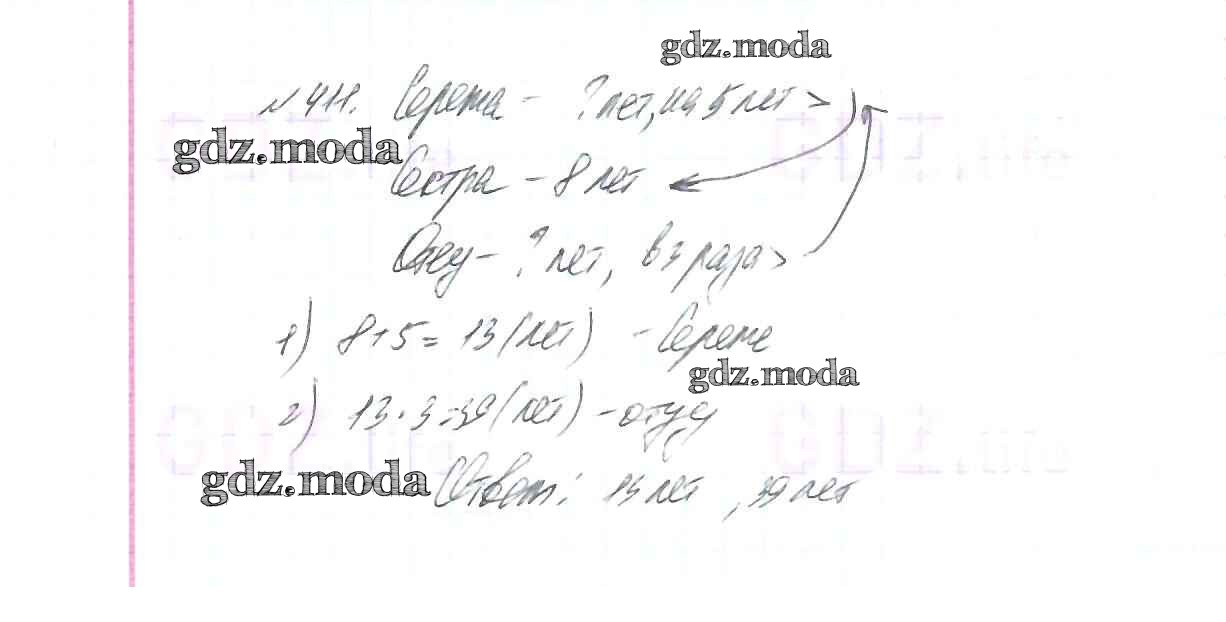 gdz.moda
№ 411. Сережа - ? лет, на 5 лет >
gdz.moda
Сестра - 8 лет
Отец - ? лет, в 3 раза >
1) 8+5= 13 (лет) - Сереже
gdz.moda
2) 13·3=39 (лет) - отцу
gdz.moda Ответ: 13 лет , 39 лет